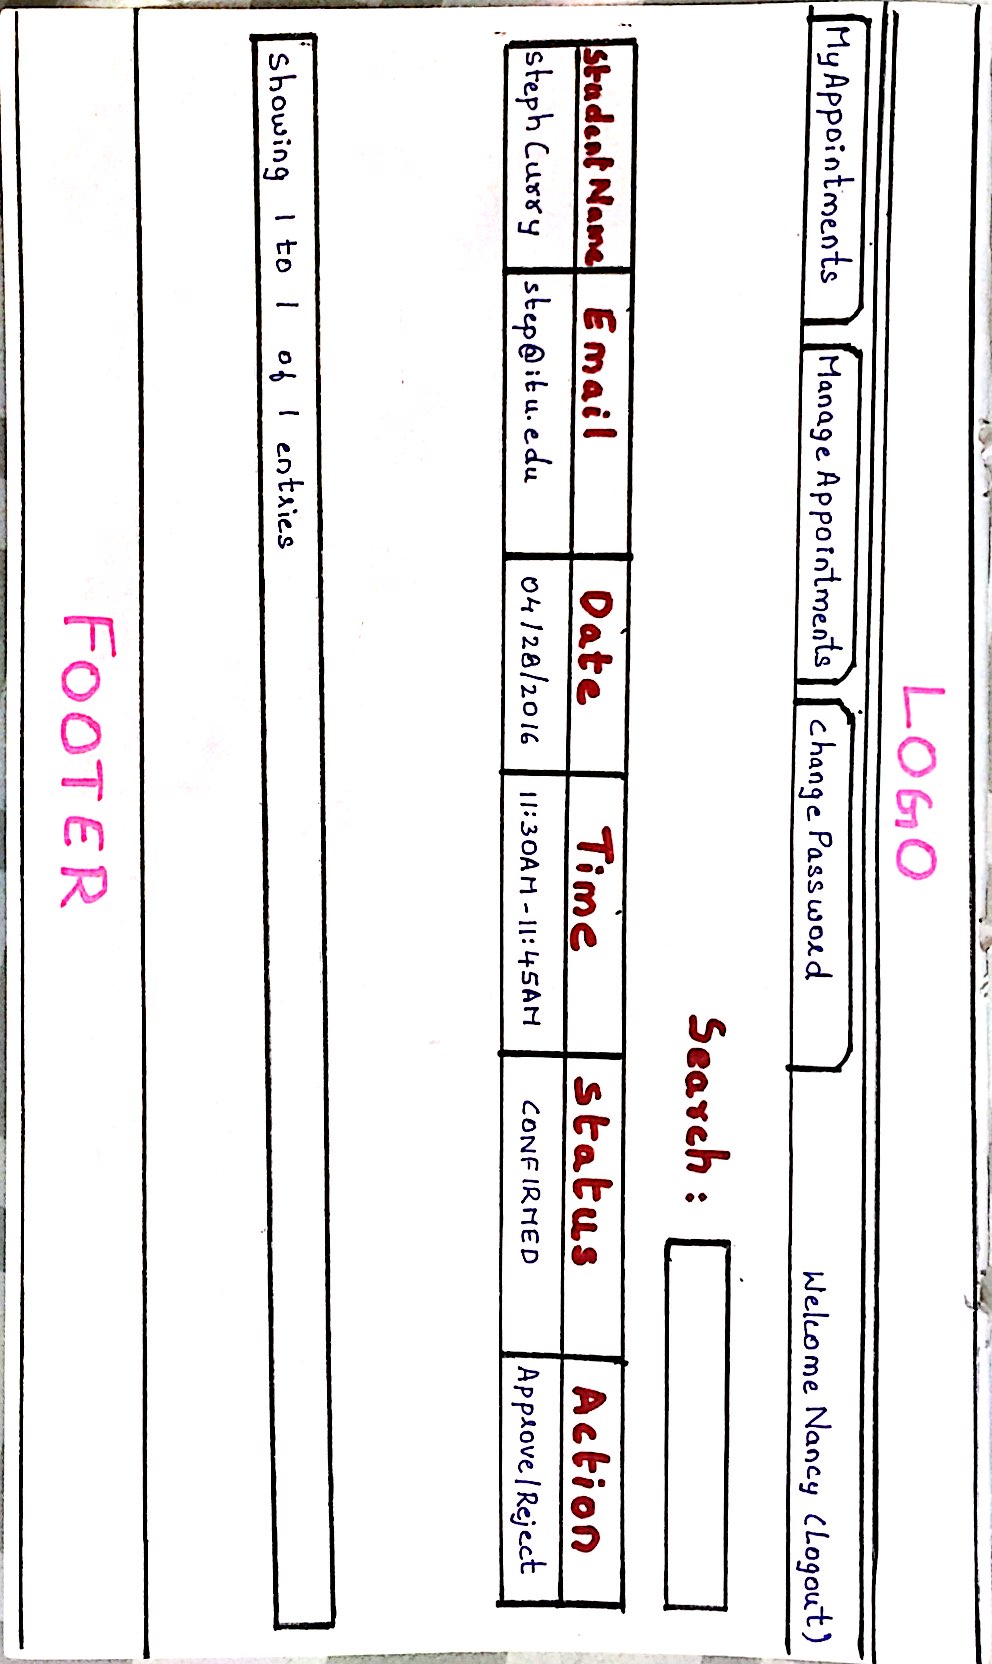 LOGO
My Appointments Manage Appointments change Password Welcome Nancy (Logout)
Search :
Student Name Email Date Time status Action
steph Curry step@itu.edu 04/28/2016 11:30AM-11:45AM CONFIRMED Approve/Reject
showing 1 to 1 of 1 entries
FOOTER